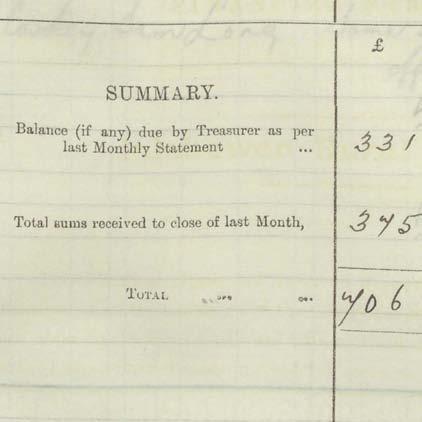 £
SUMMARY.
Balance (if any) due by Treasurer as per
last Monthly Statement ... 331
Total sums received to close of last Month, 375
TOTAL ... ... 706